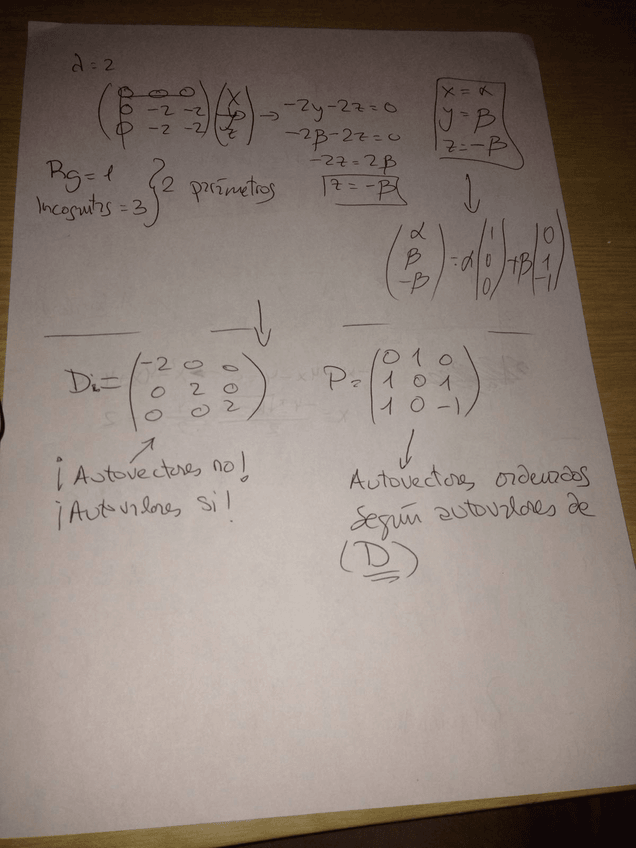 λ=2
(0 0 0
0 -2 -2
0 -2 -2) (x
y
z) → -2y-2z=0
-2β-2z=0
-2z=2β
z=-β
x=α
y=β
z=-β
Rg=1
Incognitas=3 } 2 parámetros
(α
β
-β) = α (1
0
0) + β (0
1
-1)
D = (-2 0 0
0 2 0
0 0 2)
P = (0 1 0
1 0 1
1 0 -1)
¡Autovectores no!
¡Autovalores si!
Autovectores ordenados
según autovalores de
(D)